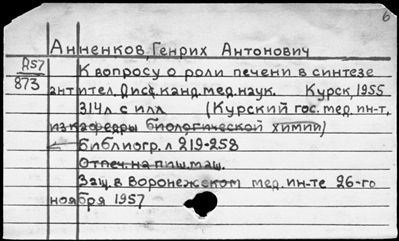 6
Анненков, Генрих Антонович
Д57
873
К вопросу о роли печени в синтезе
антител. Дисс. канд. мед. наук. Курск, 1955
314л с илл (Курский гос. мед. ин-т,
из кафедры биологической химии)
Библиогр. л 219-258
Отпеч. на пиш. маш.
Защ. в Воронежском мед. ин-те 26-го
ноября 1957